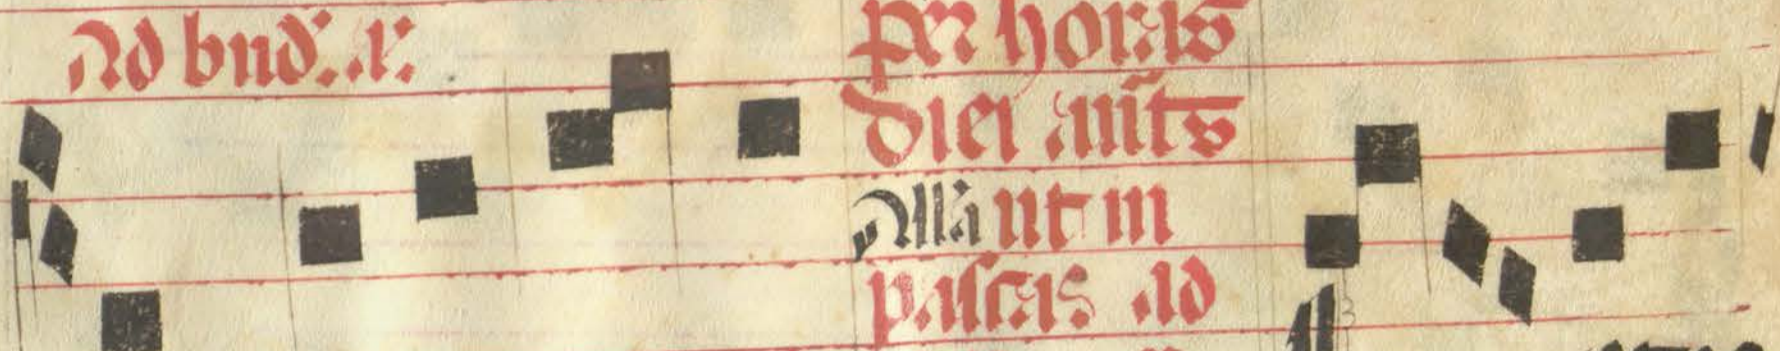 Ad bnđ. a͛.
per horas
diei añts
Alla ut in
pascas ad